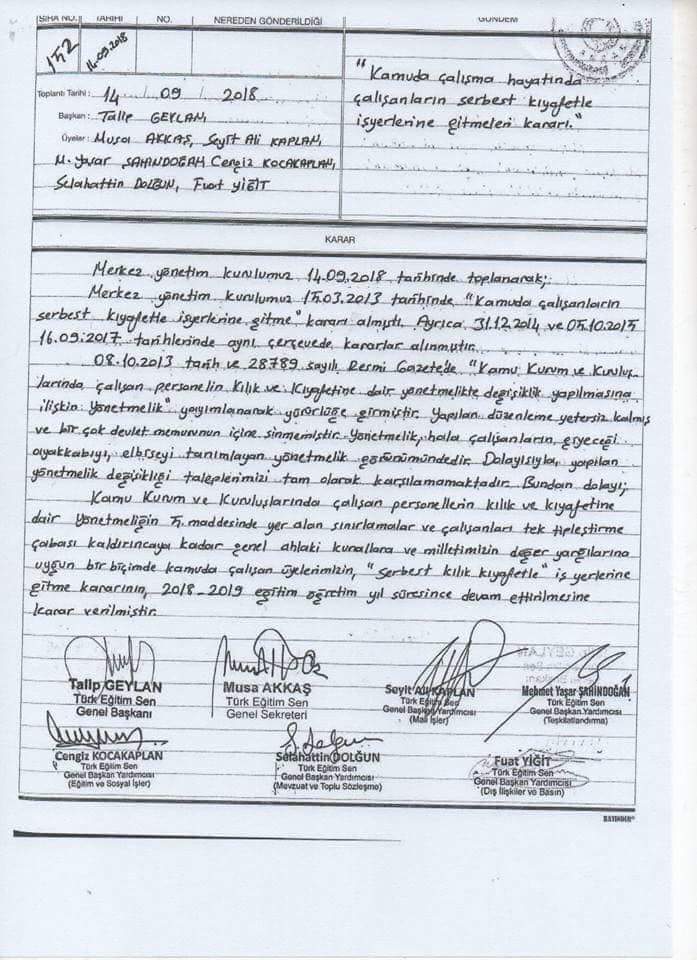 SIRA NO. TARİHİ NO. NEREDEN GÖNDERİLDİĞİ GÜNDEM
14.09.2018
"Kamuda çalışma hayatında
çalışanların serbest kıyafetle
işyerlerine gitmeleri kararı."
Toplantı Tarihi : 14 / 09 / 2018
Başkan : Talip GEYLAN,
Üyeler : Musa AKKAŞ, Seyit Ali KAPLAN,
M. Yaşar ŞAHİNDOĞAN, Cengiz KOCAKAPLAN,
Selahattin DOLĞUN, Fuat YİĞİT
KARAR
Merkez yönetim kurulumuz 14.09.2018 tarihinde toplanarak;
Merkez yönetim kurulumuz 15.03.2013 tarihinde "Kamuda çalışanların
serbest kıyafetle işyerlerine gitme" kararı almıştı. Ayrıca 31.12.2014 ve 05.10.2015
16.09.2017 tarihlerinde aynı çerçevede kararlar alınmıştır.
08.10.2013 tarih ve 28789 sayılı Resmi Gazete'de "Kamu Kurum ve Kuruluş-
larında çalışan personelin Kılık ve Kıyafetine dair yönetmelikte değişiklik yapılmasına
ilişkin Yönetmelik" yayımlanarak yürürlüğe girmiştir. Yapılan düzenleme yetersiz kalmış
ve bir çok devlet memurunun içine sinmemiştir. Yönetmelik, hala çalışanların giyeceği
ayakkabıyı, elbiseyi tanımlayan yönetmelik görünümündedir. Dolayısıyla, yapılan
yönetmelik değişikliği taleplerimizi tam olarak karşılamamaktadır. Bundan dolayı;
Kamu Kurum ve Kuruluşlarında çalışan personellerin kılık ve kıyafetine
dair Yönetmeliğin 5. maddesinde yer alan sınırlamalar ve çalışanları tek tipleştirme
çabası kaldırıncaya kadar genel ahlaki kurallara ve milletimizin değer yargılarına
uygun bir biçimde kamuda çalışan üyelerimizin, "Serbest kılık kıyafetle" iş yerlerine
gitme kararının, 2018-2019 eğitim öğretim yıl süresince devam ettirilmesine
karar verilmiştir.
Talip GEYLAN
Türk Eğitim Sen
Genel Başkanı
Musa AKKAŞ
Türk Eğitim Sen
Genel Sekreteri
Seyit Ali KAPLAN
Türk Eğitim Sen
Genel Başkan Yardımcısı
(Mali İşler)
Mehmet Yaşar ŞAHİNDOĞAN
Türk Eğitim Sen
Genel Başkan Yardımcısı
(Teşkilatlandırma)
Cengiz KOCAKAPLAN
Türk Eğitim Sen
Genel Başkan Yardımcısı
(Eğitim ve Sosyal İşler)
Selahattin DOLĞUN
Türk Eğitim Sen
Genel Başkan Yardımcısı
(Mevzuat ve Toplu Sözleşme)
Fuat YİĞİT
Türk Eğitim Sen
Genel Başkan Yardımcısı
(Dış İlişkiler ve Basın)